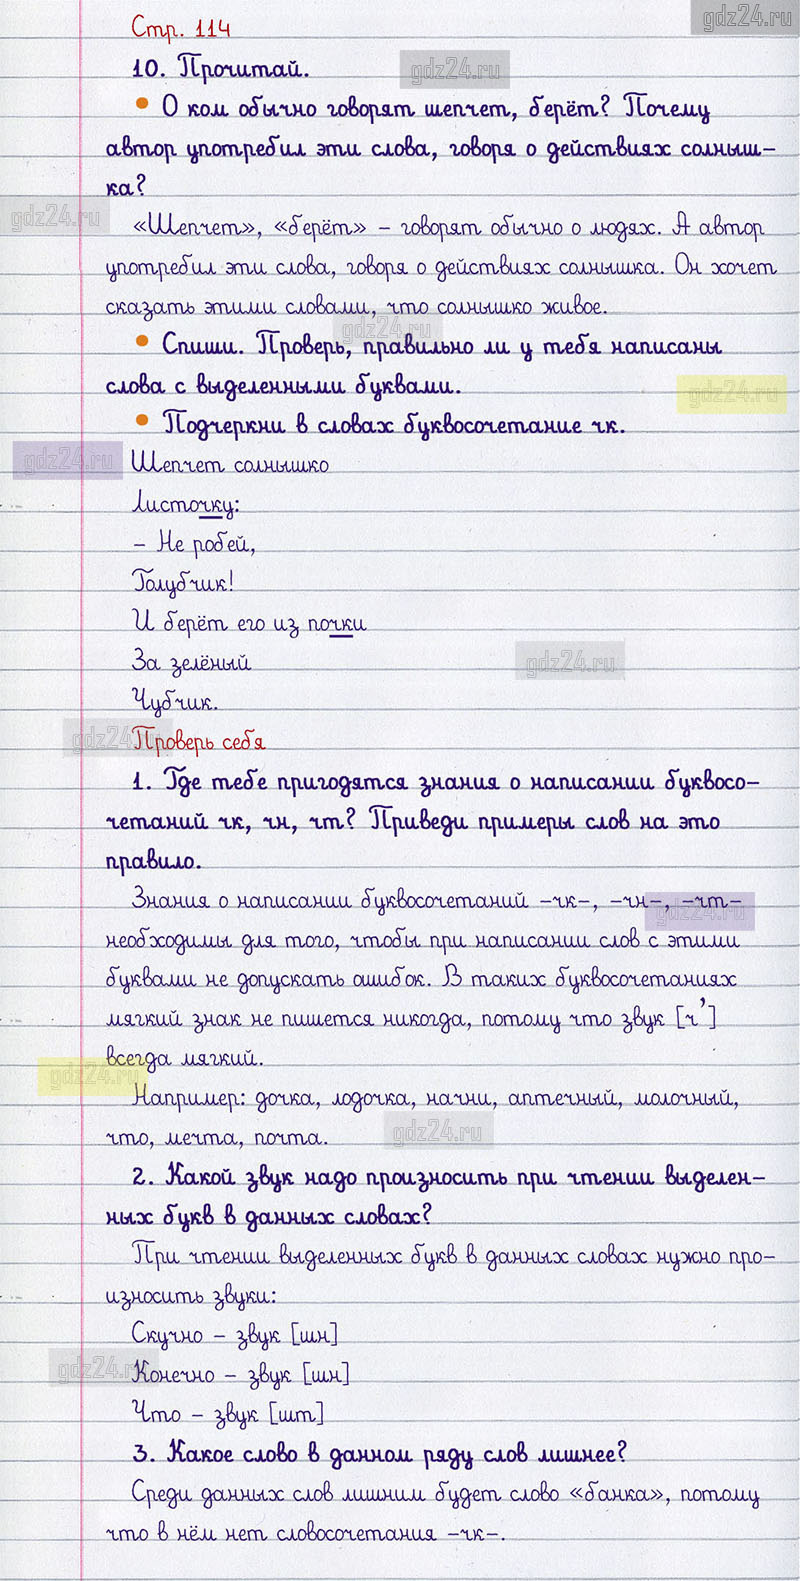 gdz24.ru
Стр. 114
10. Прочитай.
gdz24.ru
О ком обычно говорят шепчет, берёт? Почему
автор употребил эти слова, говоря о действиях солныш-
ка?
gdz24.ru
«Шепчет», «берёт» – говорят обычно о людях. А автор
употребил эти слова, говоря о действиях солнышка. Он хочет
сказать этими словами, что солнышко живое.
gdz24.ru
Спиши. Проверь, правильно ли у тебя написаны
слова с выделенными буквами.
gdz24.ru
Подчеркни в словах буквосочетание чк.
gdz24.ru
Шепчет солнышко
Листочку:
– Не робей,
Голубчик!
И берёт его из почки
За зелёный
gdz24.ru
Чубчик.
gdz24.ru
Проверь себя
1. Где тебе пригодятся знания о написании буквосо-
четаний чк, чн, чт? Приведи примеры слов на это
правило.
Знания о написании буквосочетаний –чк–, –чн–, –чт–
gdz24.ru
необходимы для того, чтобы при написании слов с этими
буквами не допускать ошибок. В таких буквосочетаниях
мягкий знак не пишется никогда, потому что звук [ч']
всегда мягкий.
gdz24.ru
Например: дочка, лодочка, начни, аптечный, молочный,
что, мечта, почта.
gdz24.ru
2. Какой звук надо произносить при чтении выделен-
ных букв в данных словах?
При чтении выделенных букв в данных словах нужно про-
износить звуки:
Скучно – звук [шн]
gdz24.ru
Конечно – звук [шн]
Что – звук [шт]
3. Какое слово в данном ряду слов лишнее?
Среди данных слов лишним будет слово «банка», потому
что в нём нет словосочетания –чк–.